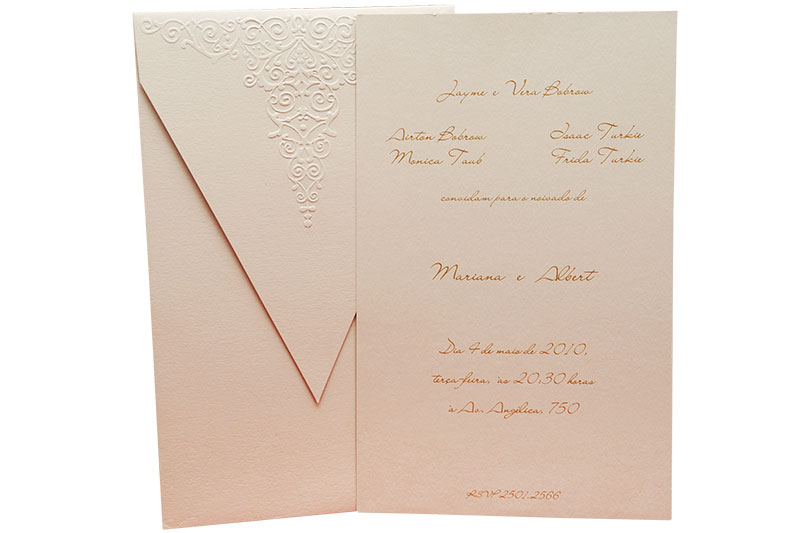 Jayme e Vera Bobrow
Airton Bobrow Isaac Turkie
Monica Taub Frida Turkie
convidam para o noivado de
Mariana e Albert
Dia 4 de maio de 2010,
terça-feira, às 20:30 horas
à Av. Angélica, 750
RSVP 2501.2566